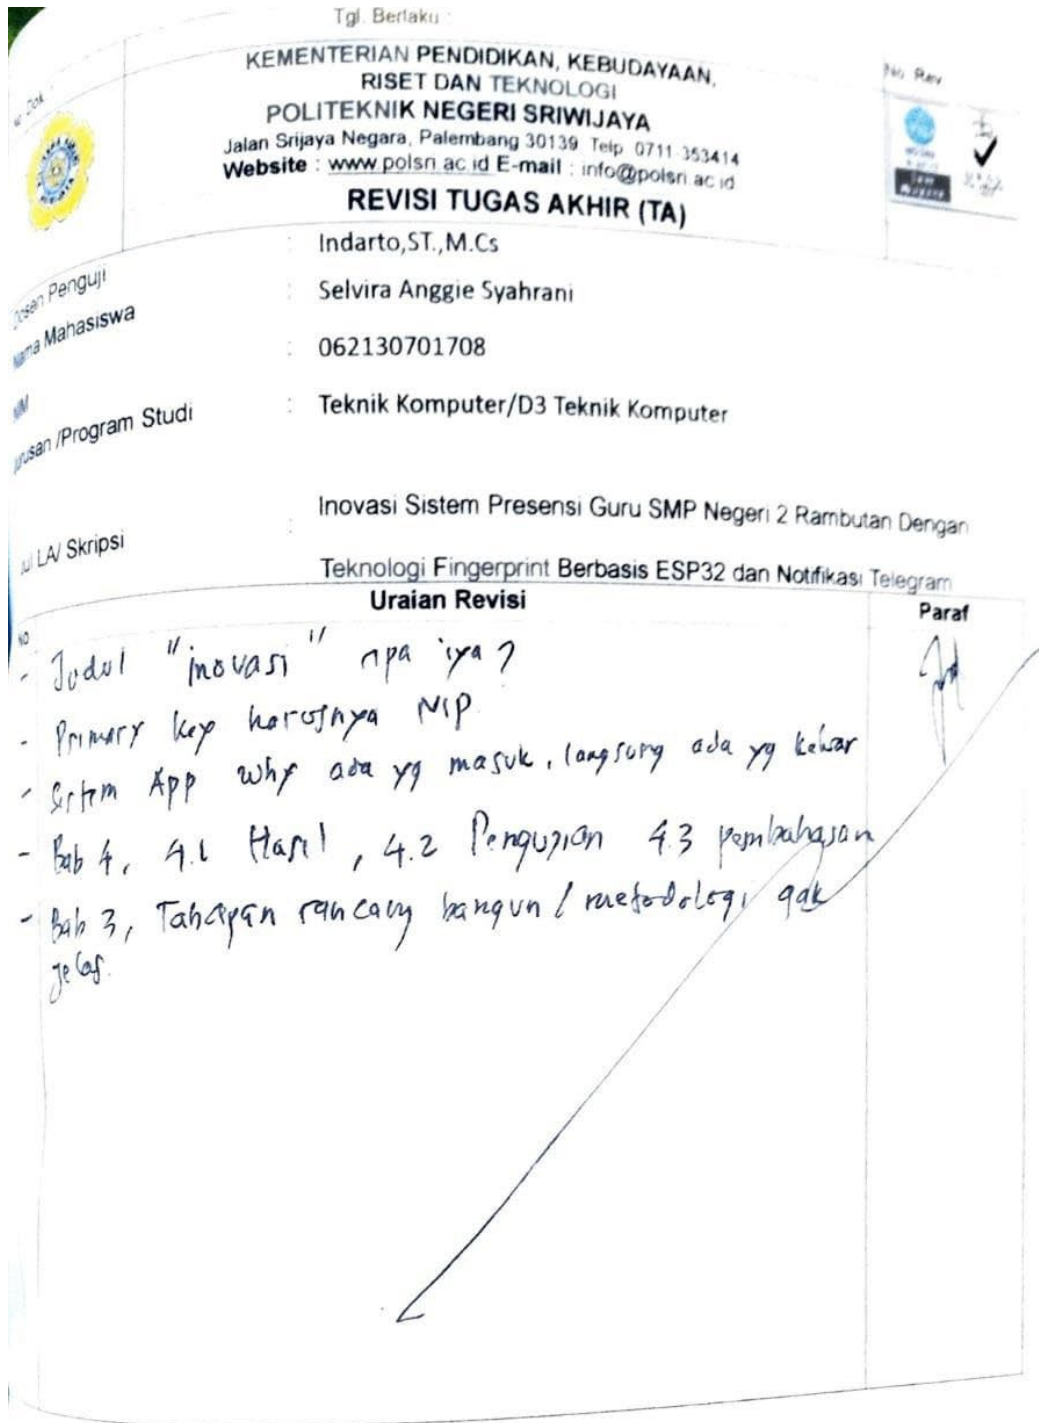 Tgl. Berlaku :
No. Dok :
No. Rev
KEMENTERIAN PENDIDIKAN, KEBUDAYAAN,
RISET DAN TEKNOLOGI
POLITEKNIK NEGERI SRIWIJAYA
Jalan Srijaya Negara, Palembang 30139 Telp. 0711-353414
Website : www.polsri.ac.id E-mail : info@polsri.ac.id
REVISI TUGAS AKHIR (TA)
Dosen Penguji : Indarto,ST.,M.Cs
Nama Mahasiswa : Selvira Anggie Syahrani
NIM : 062130701708
Jurusan /Program Studi : Teknik Komputer/D3 Teknik Komputer
Judul LA/ Skripsi : Inovasi Sistem Presensi Guru SMP Negeri 2 Rambutan Dengan
Teknologi Fingerprint Berbasis ESP32 dan Notifikasi Telegram
NO Uraian Revisi Paraf
- Judul "inovasi" apa iya ?
- Primary key harusnya NIP.
- Sistem App why ada yg masuk, langsung ada yg keluar
- Bab 4, 4.1 Hasil, 4.2 Pengujian 4.3 pembahasan
- Bab 3, Tahapan rancang bangun / metodologi gak
jelas.